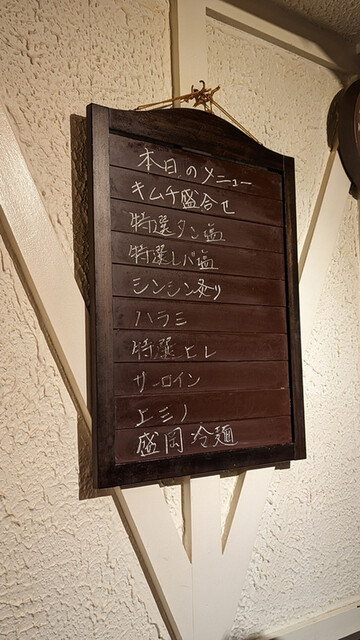 本日のメニュー
キムチ盛合せ
特選タン塩
特選レバ塩
シンシン炙り
ハラミ
特選ヒレ
サーロイン
上ミノ
盛岡冷麺